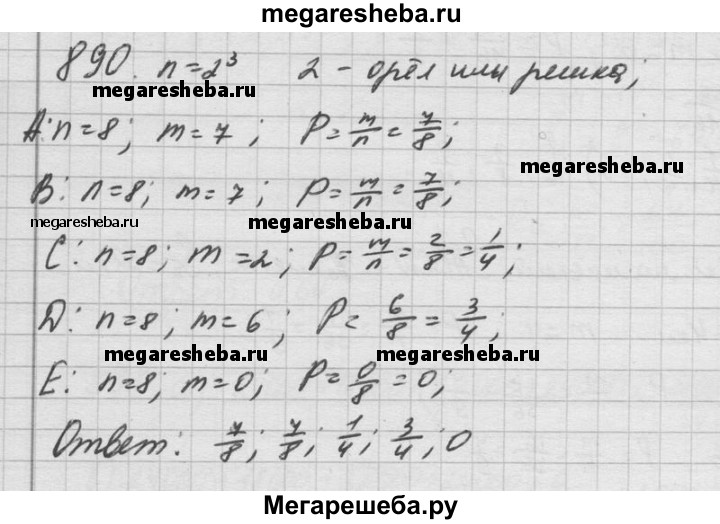 megaresheba.ru
890. n=2³ 2 - орёл или решка;
megaresheba.ru
A: n=8; m=7; P=m/n=7/8;
megaresheba.ru
B: n=8; m=7; P=m/n=7/8;
megaresheba.ru megaresheba.ru
C: n=8; m=2; P=m/n=2/8=1/4;
D: n=8; m=6; P=6/8=3/4;
megaresheba.ru megaresheba.ru
E: n=8; m=0; P=0/8=0;
Ответ: 7/8; 7/8; 1/4; 3/4; 0
Мегарешеба.ру